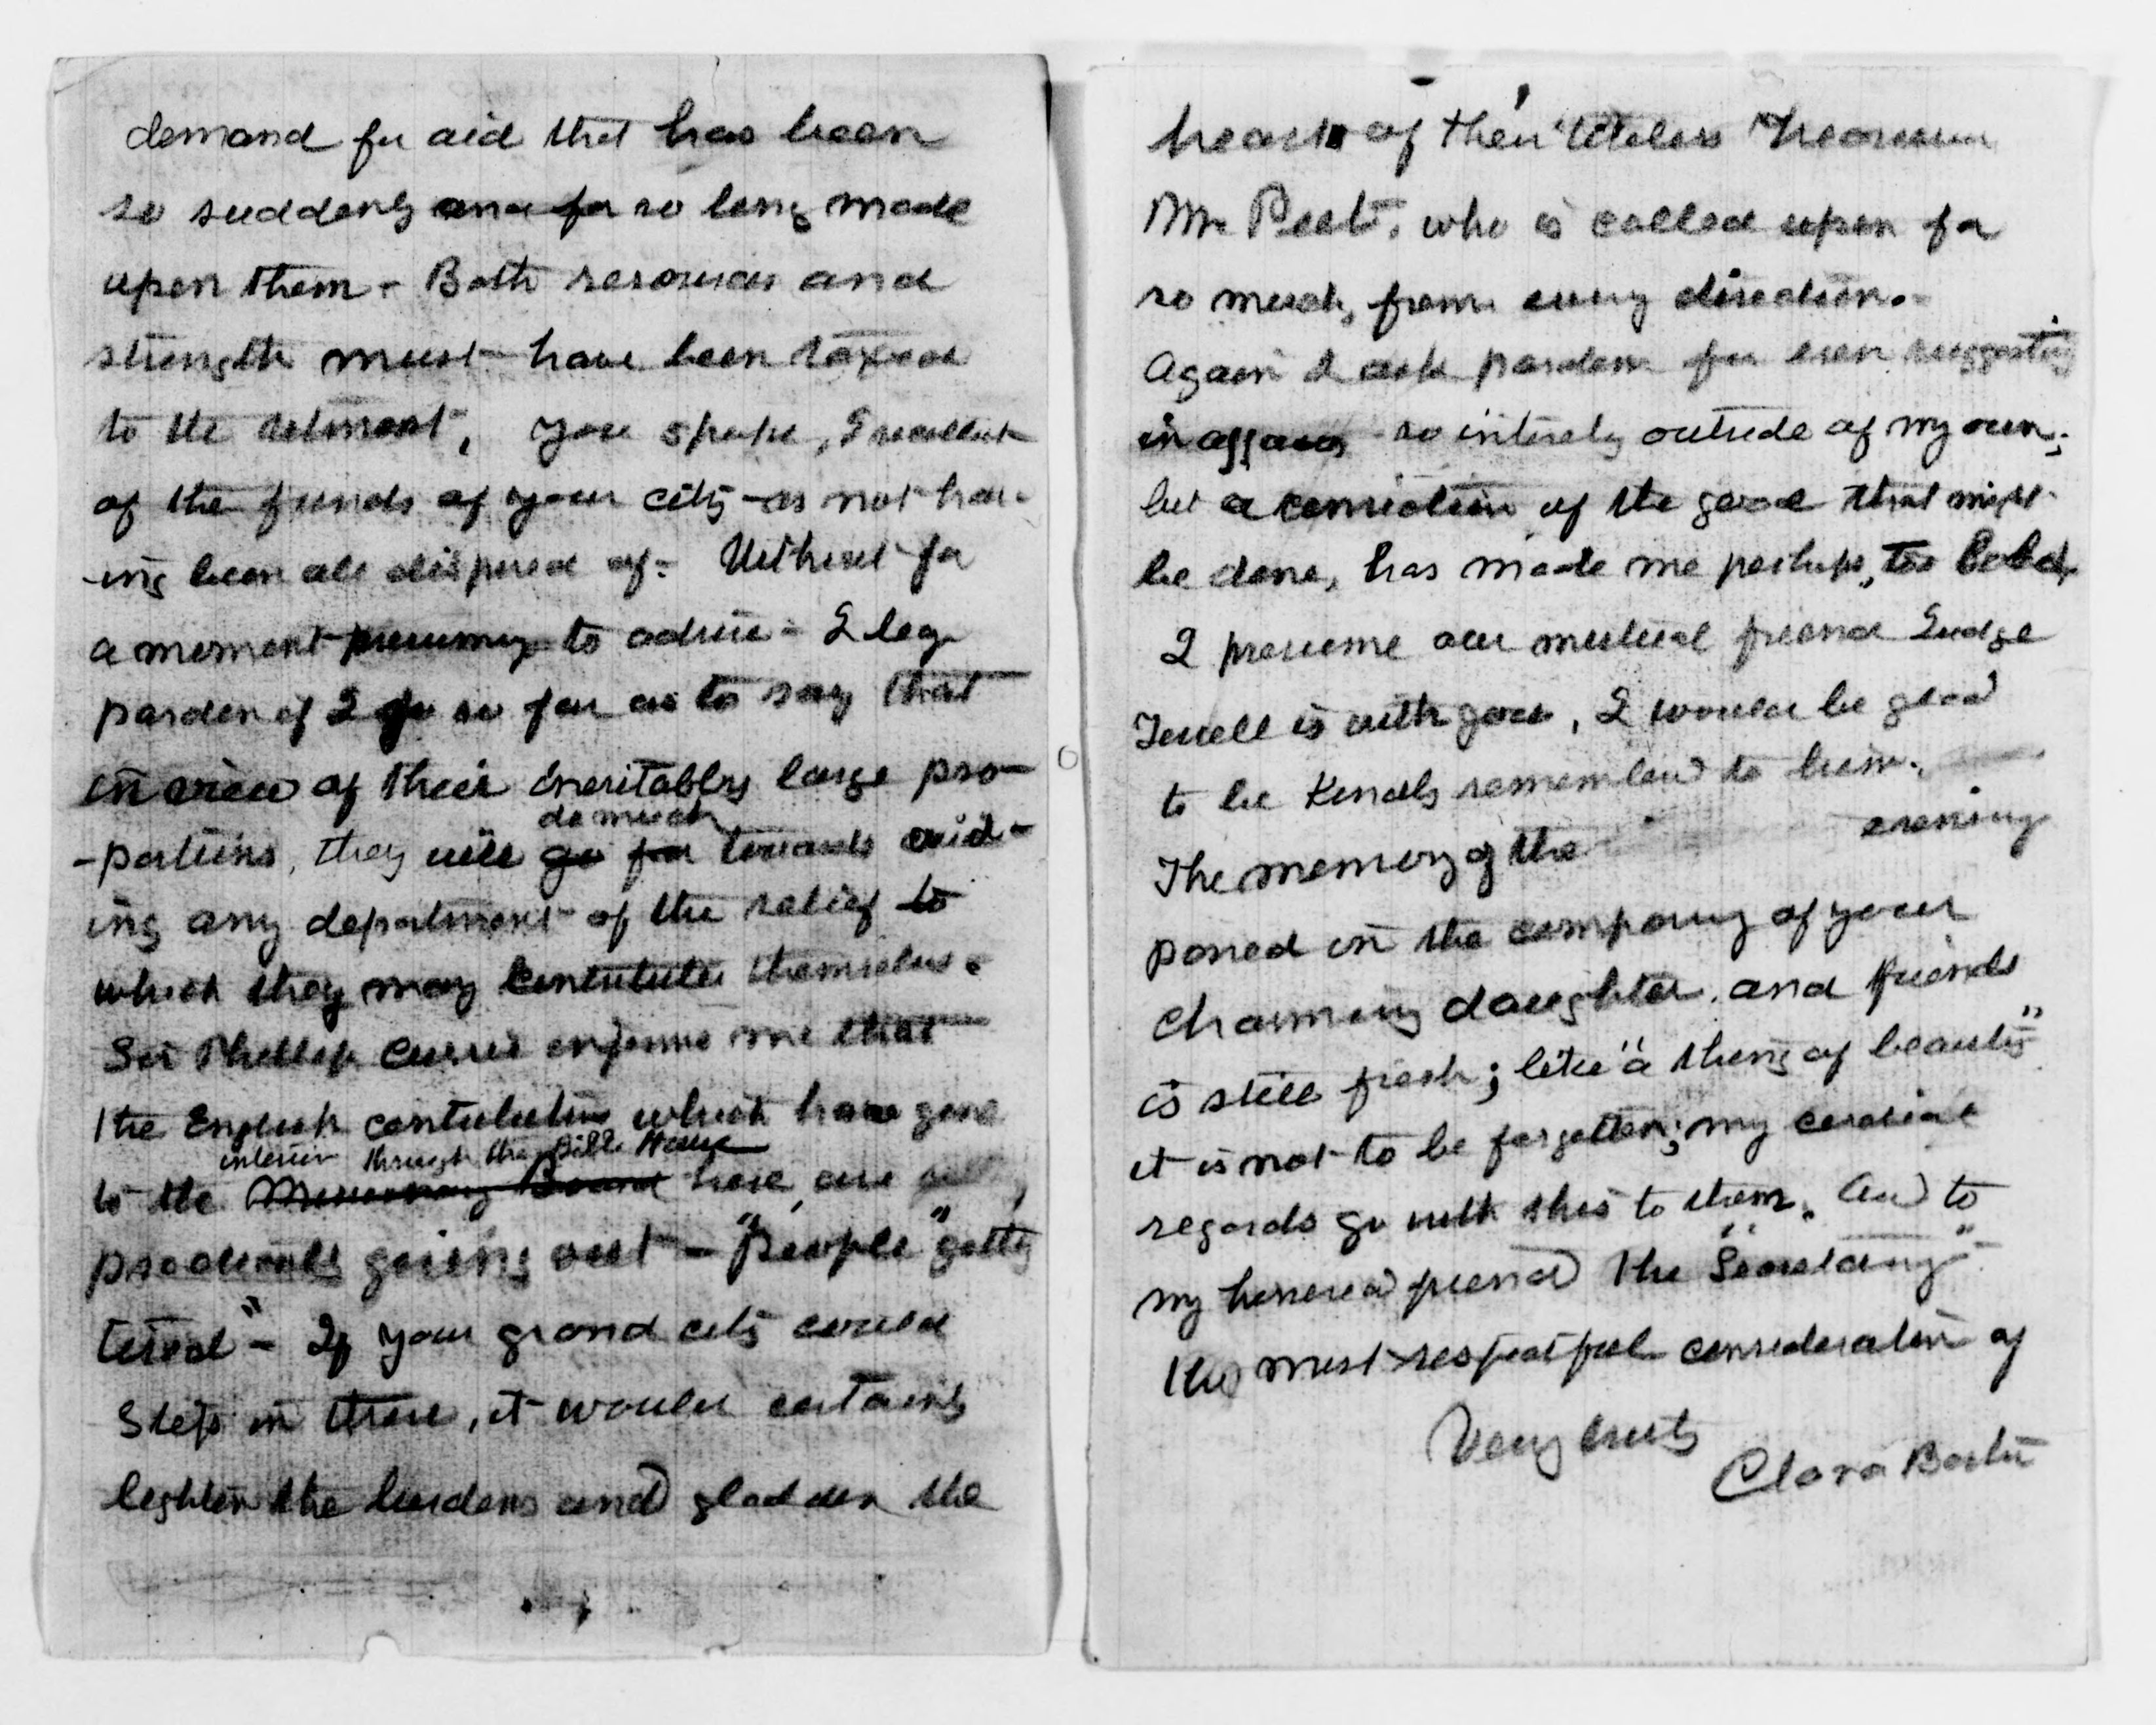 demand for aid that has been
so suddenly and for so long made
upon them - Both resources and
strength must have been taxed
to the utmost, you spoke, I recollect
of the funds of your city - as not hav-
-ing been all disposed of - Without for
a moment presuming to advise - I beg
pardon if I go so far as to say that
in view of their inevitably large pro-
do much
-portions, they will go far towards aid-
ing any department of the relief to
which they may contribute themselves.
Sir Phillip Currie informs me that
the English contributions which have gone
interior through the Bible House
to the Missionary Board here, are
practically giving out - "People" "getting
tired" - If your grand city could
Step in there, it would certainly
lighten the burdens and gladden the
heart of their tireless Treasurer
Mr Peet, who is called upon for
so much, from every direction. -
Again I ask pardon for even suggesting
in affairs so intirely outside of my own;
but a conviction of the good that might
be done, has made me perhaps, too bold.
I presume our mutual friend Judge
Terrell is with you, I would be glad
to be kindly remembered to him.
The memory of the evening
passed in the company of your
charming daughter, and friends
is still fresh; like "a thing of beauty"
it is not to be forgotten; my cordial
regards go with this to them, and to
my honored friend the "Secretary"
the most respectful consideration of
Very truly
Clara Barton